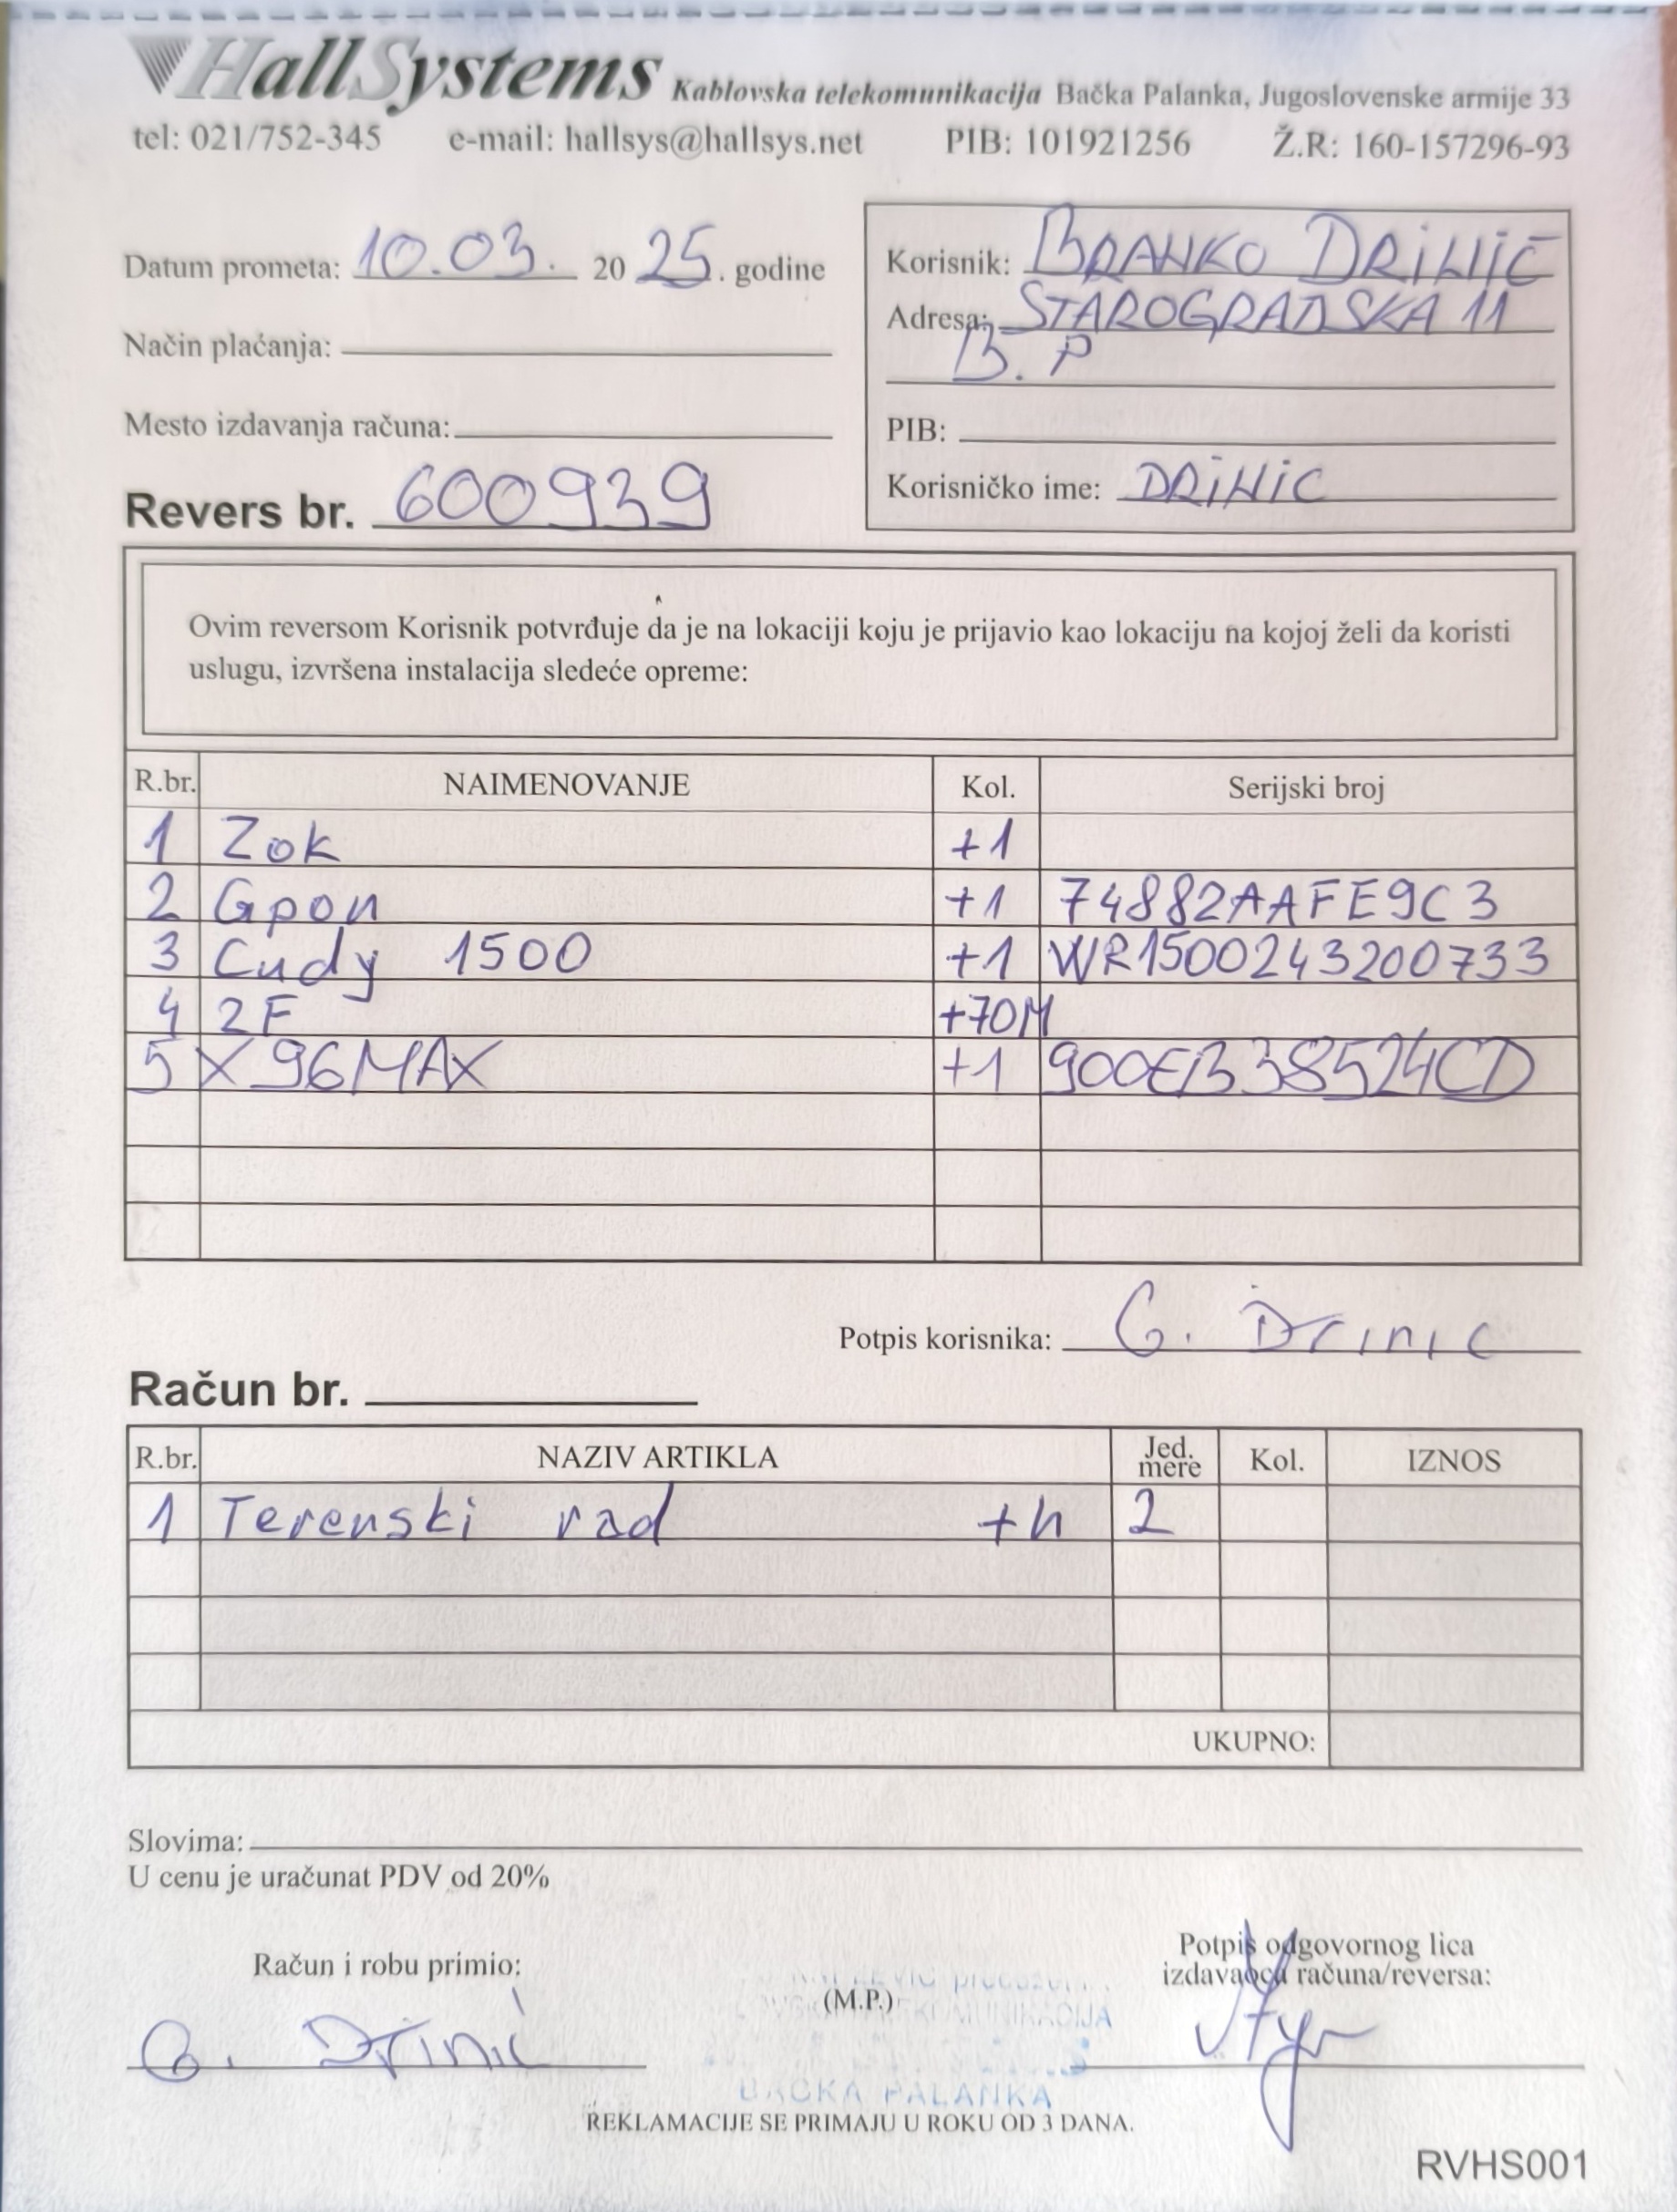 HallSystems Kablovska telekomunikacija Bačka Palanka, Jugoslovenske armije 33
tel: 021/752-345 e-mail: hallsys@hallsys.net PIB: 101921256 Ž.R: 160-157296-93
Datum prometa: 10.03. 2025. godine
Način plaćanja:
Mesto izdavanja računa:
Revers br. 600939
Korisnik: BRANKO DRINIĆ
Adresa: STAROGRADSKA 11
B. P
PIB:
Korisničko ime: DRINIC
Ovim reversom Korisnik potvrđuje da je na lokaciji koju je prijavio kao lokaciju na kojoj želi da koristi
uslugu, izvršena instalacija sledeće opreme:
R.br. NAIMENOVANJE Kol. Serijski broj
1 Zok +1
2 Gpon +1 74882AAFE9C3
3 Cudy 1500 +1 WR1500243200733
4 2F +70M
5 X96MAX +1 900EB38524CD
Potpis korisnika: G. Drinic
Račun br.
R.br. NAZIV ARTIKLA Jed. mere Kol. IZNOS
1 Terenski rad +h 2
UKUPNO:
Slovima:
U cenu je uračunat PDV od 20%
Račun i robu primio:
G. Drinić
(M.P.)
BAČKA PALANKA
Potpis odgovornog lica
izdavaoca računa/reversa:
REKLAMACIJE SE PRIMAJU U ROKU OD 3 DANA.
RVHS001